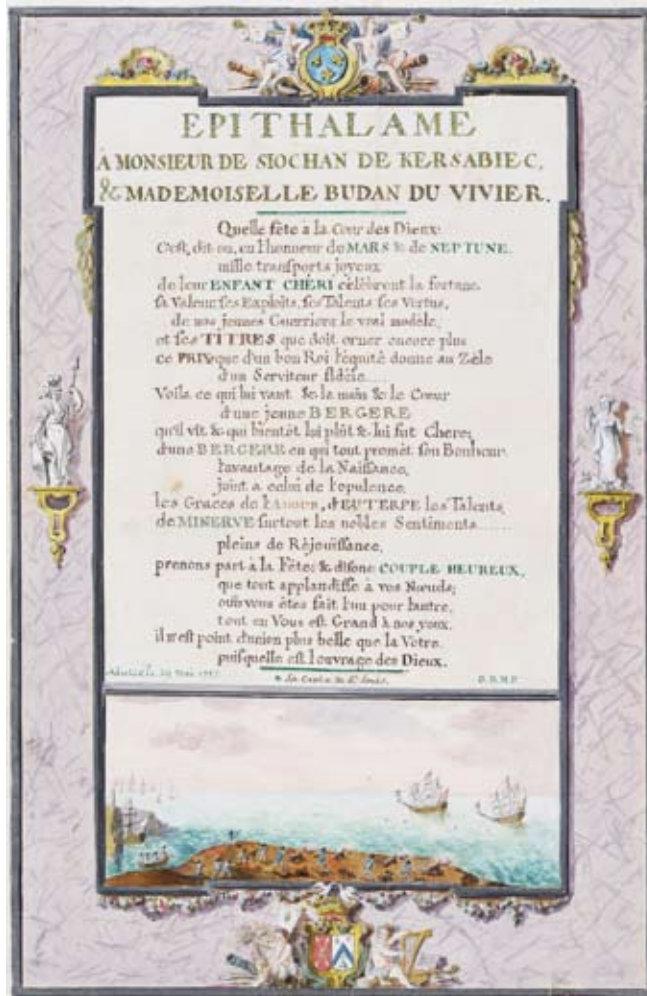 EPITHALAME
À MONSIEUR DE SIOCHAN DE KERSABIEC,
& MADEMOISELLE BUDAN DU VIVIER.
Quelle fête à la Cour des Dieux!
C'est, dit-on, en l'honneur de MARS & de NEPTUNE.
mille transports joyeux
de leur ENFANT CHÉRI célébrent la fortune.
sa Valeur, ses Exploits, ses Talents, ses Vertus,
de nos jeunes Guerriers le vrai modèle,
et ses TITRES que doit orner encore plus
ce PRIX que d'un bon Roi l'équité donne au Zèle
d'un Serviteur fidèle.....
Voila ce qui lui vaut & la main & le Cœur
d'une jeune BERGERE
qu'il vit & qui bientôt lui plût & lui fut Chere;
d'une BERGERE en qui tout promêt son Bonheur.
l'avantage de la Naissance,
joint a celui de l'opulence,
les Graces de l'AMOUR, d'EUTERPE les Talents,
de MINERVE surtout les nobles Sentiments......
pleins de Réjouissance,
prenons part à la Fête; & disons COUPLE HEUREUX,
que tout applaudisse à vos Nœuds;
oui vous êtes fait l'un pour l'autre,
tout en Vous est Grand à nos yeux.
il n'est point d'union plus belle que la Votre
puisquelle est l'ouvrage des Dieux.
le 29 Mai
* La Croix de St. Louis.